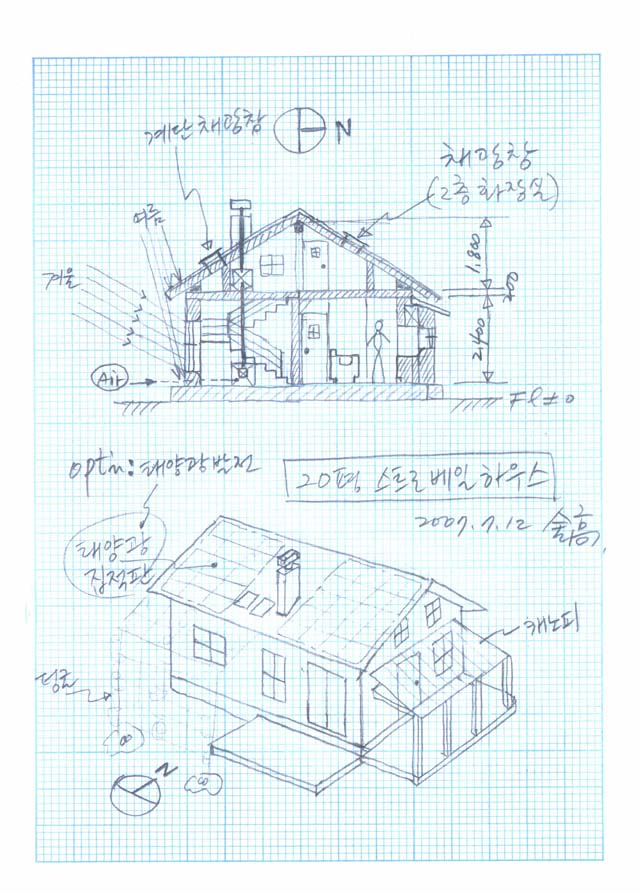 계단 채광창
N
채광창
(2층 화장실)
여름
겨울
1,800
200
2,400
Air
Fl±0
optn: 태양광발전
20평 스트로베일하우스
2007.7.12
태양광
집적판
캐노피
덩쿨
N